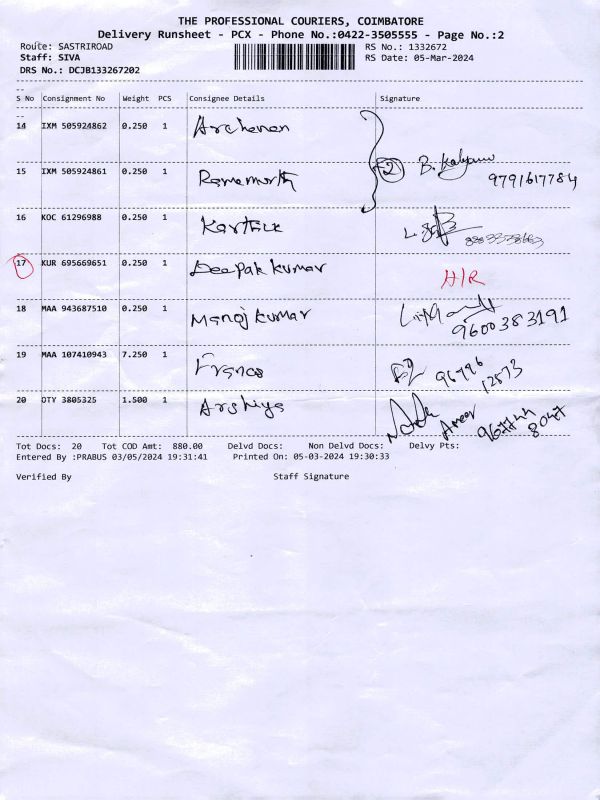 THE PROFESSIONAL COURIERS, COIMBATORE
Delivery Runsheet - PCX - Phone No.:0422-3505555 - Page No.:2
Route: SASTRIROAD RS No.: 1332672
Staff: SIVA RS Date: 05-Mar-2024
DRS No.: DCJB133267202
S No Consignment No Weight PCS Consignee Details Signature
14 IXM 505924862 0.250 1 Archanan
15 IXM 505924861 0.250 1 Ramamurth 2 B. Kalyani
9791617784
16 KOC 61296988 0.250 1 Karthik
17 KUR 695669651 0.250 1 Deepak kumar H/R
18 MAA 943687510 0.250 1 Manoj kumar 9600383191
19 MAA 107410943 7.250 1 Franco 96796 12873
20 OTY 3805325 1.500 1 Arshiya
Tot Docs: 20 Tot COD Amt: 880.00 Delvd Docs: Non Delvd Docs: Delvy Pts:
Entered By :PRABUS 03/05/2024 19:31:41 Printed On: 05-03-2024 19:30:33
Verified By Staff Signature